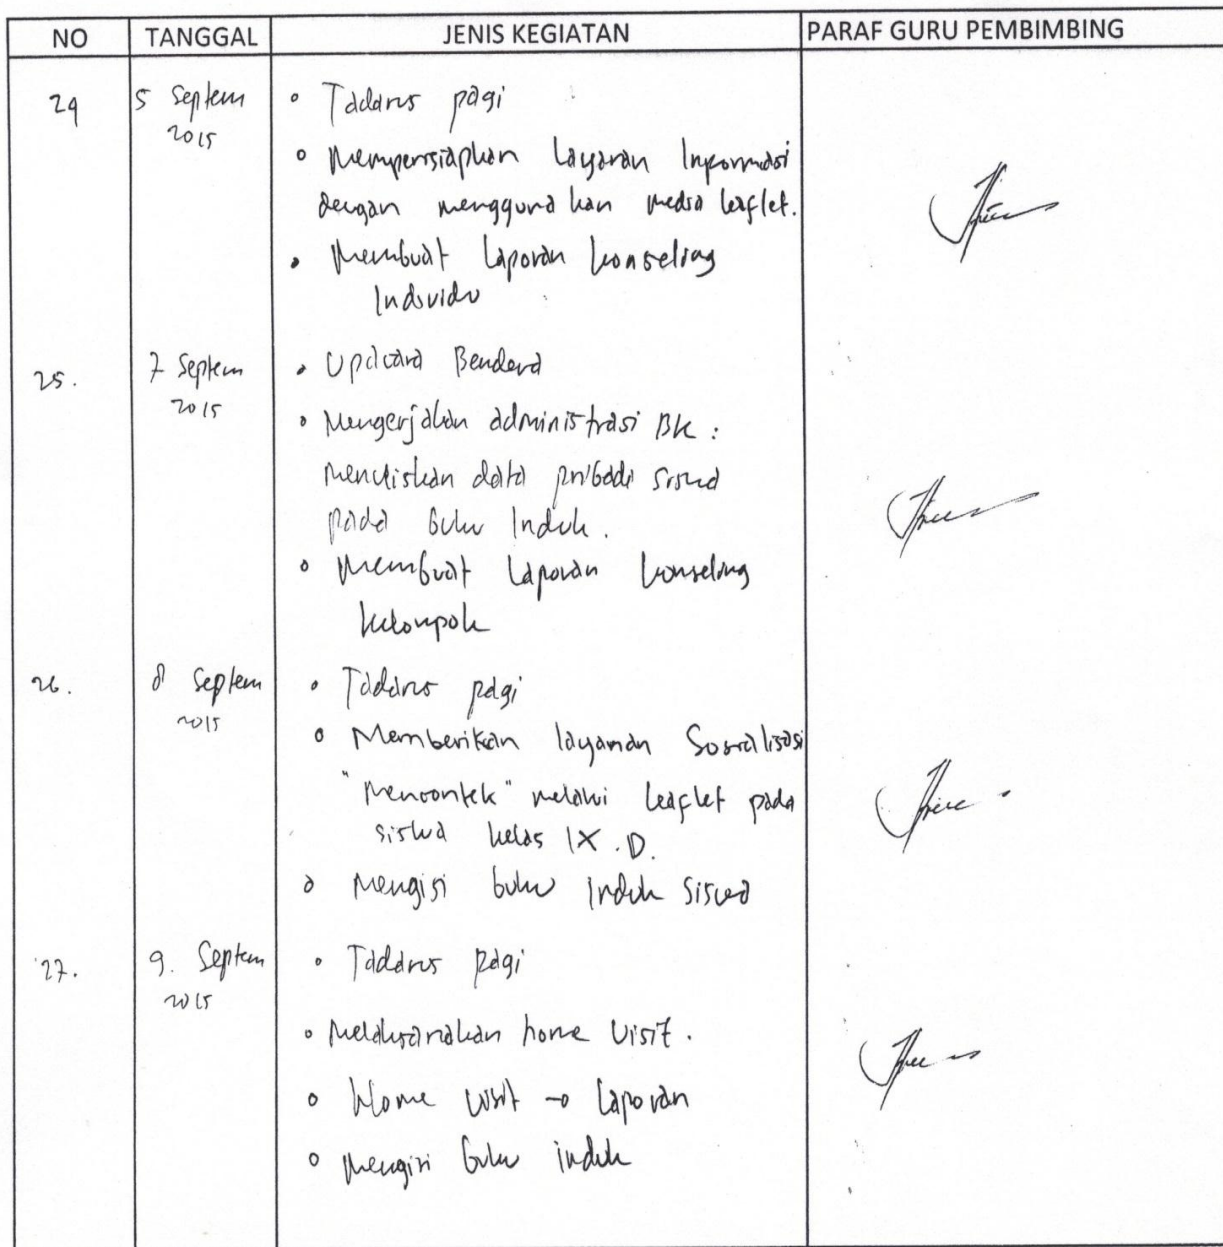 NO TANGGAL JENIS KEGIATAN PARAF GURU PEMBIMBING
24 5 Septem ∘ Tadarus pagi
2015
∘ Mempersiapkan Layanan Informasi
dengan menggunakan media leaflet.
• Membuat Laporan konseling
Individu
25. 7 Septem • Upacara Bendera
2015
∘ Mengerjakan administrasi BK :
Menuliskan data pribadi siswa
pada buku Induk.
∘ Membuat Laporan konseling
kelompok
26. 8 Septem • Tadarus pagi
2015
∘ Memberikan layanan Sosialisasi
"Mencontek" melalui leaflet pada
siswa kelas IX.D.
∘ Mengisi buku Induk siswa
27. 9. Septem ∘ Tadarus pagi
2015
∘ Melaksanakan home visit.
∘ Home visit → Laporan
∘ Mengisi buku induk